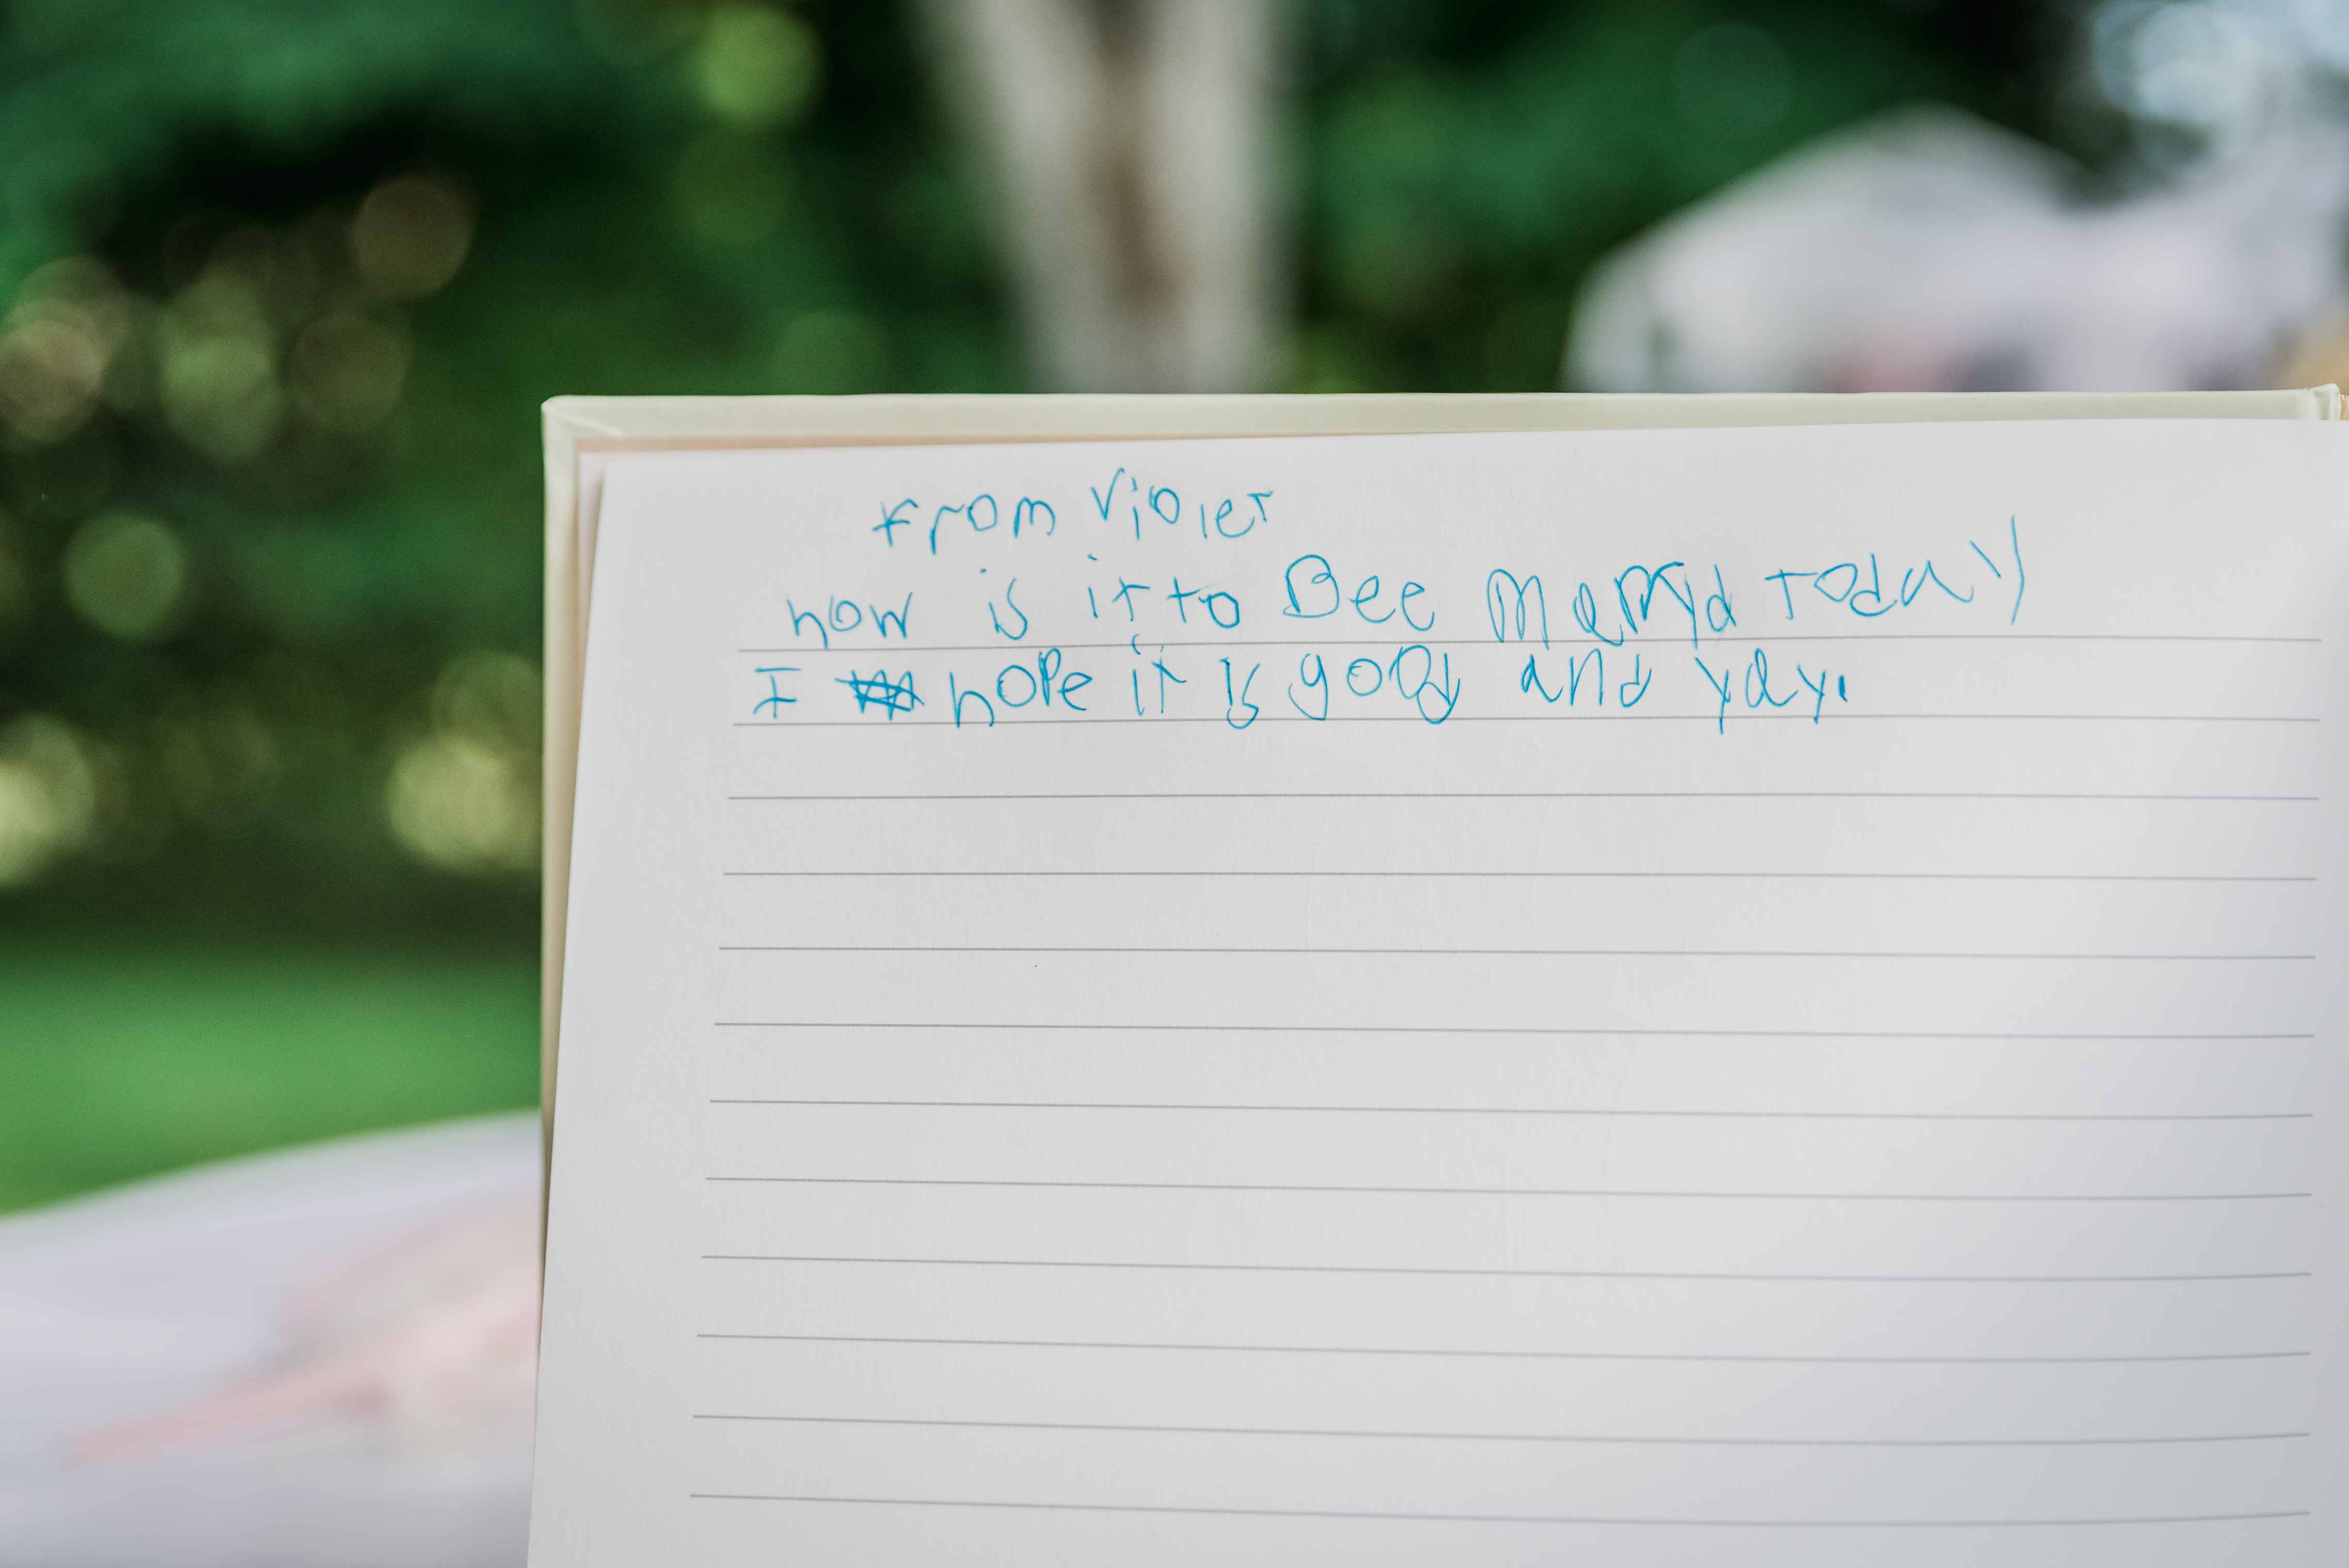 from Violet
how is it to Bee maryd today
I hope it is good and yay.